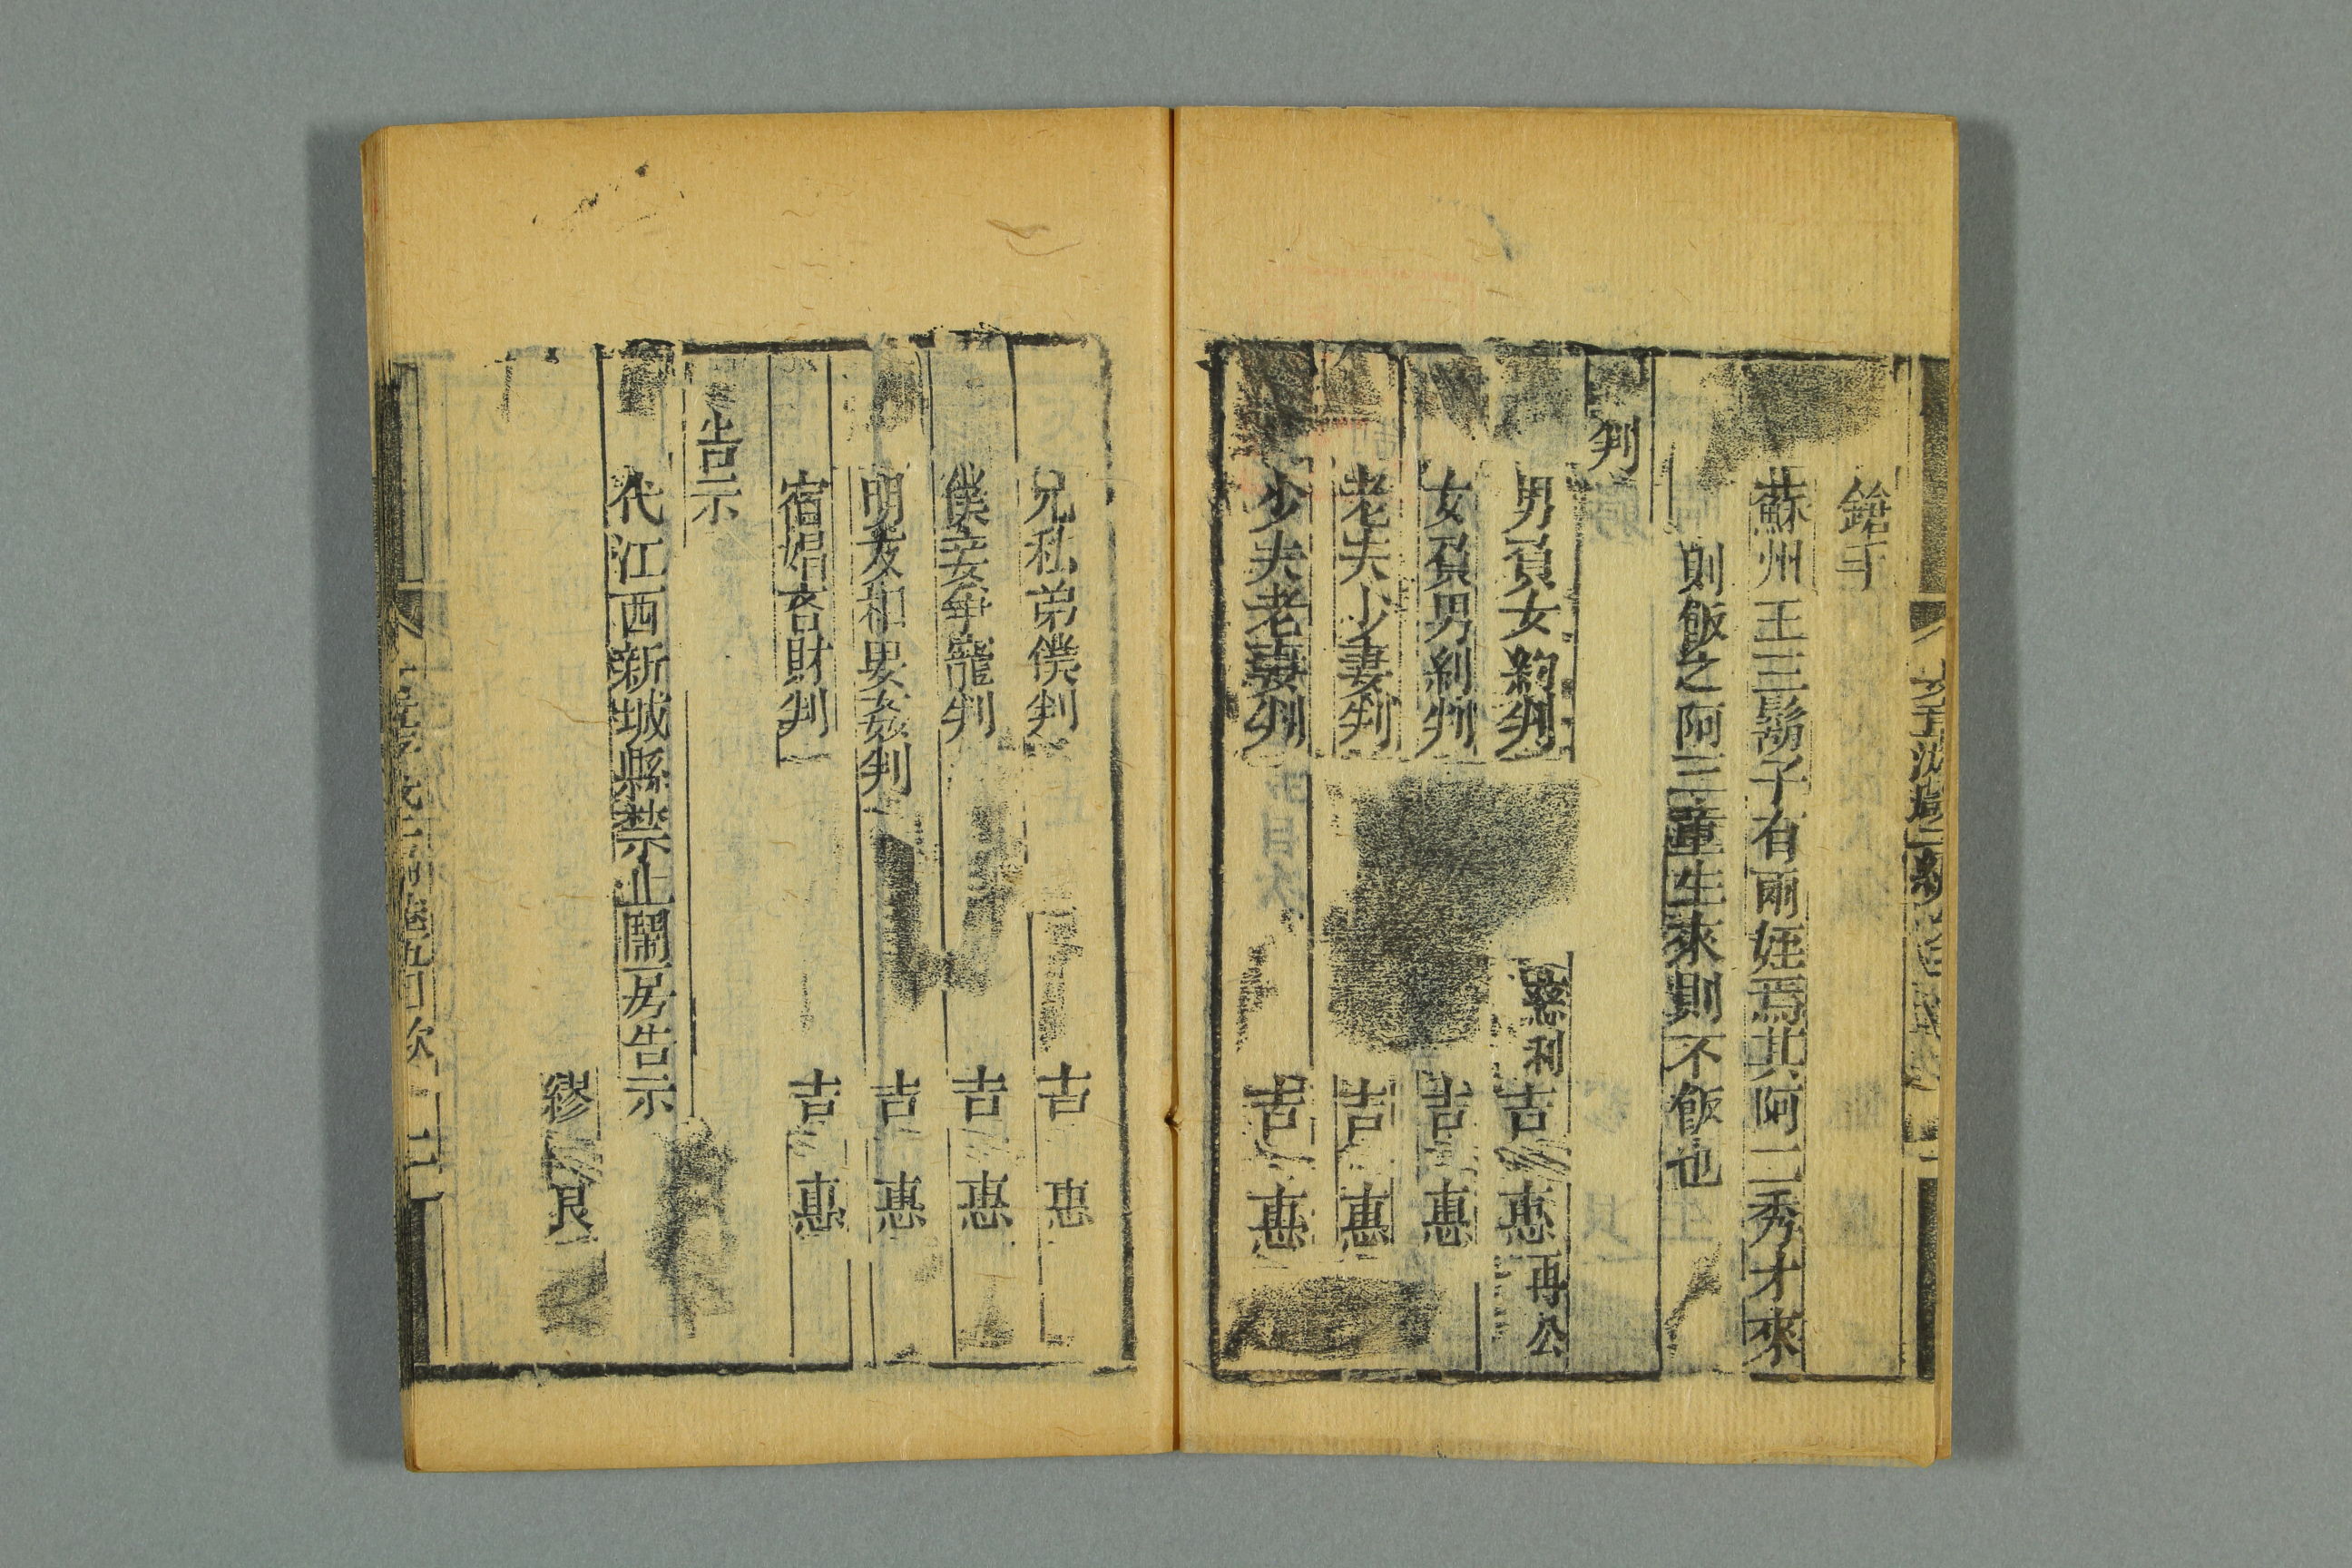 鎗手
蘇州王三鬍子有兩姪焉其阿二秀才來
則飯之阿三童生來則不飯也
判
男負女約判 蔡利 吉 惠 再公
女負男約判 吉 惠
老夫少妻判 吉 惠
少夫老妻判 吉 惠
兄私弟僕判 吉 惠
僕妾爭寵判 吉 惠
朋友和男姦判 吉 惠
宿娼吝財判 吉 惠
告示
代江西新城縣禁止鬧房告示
繆艮